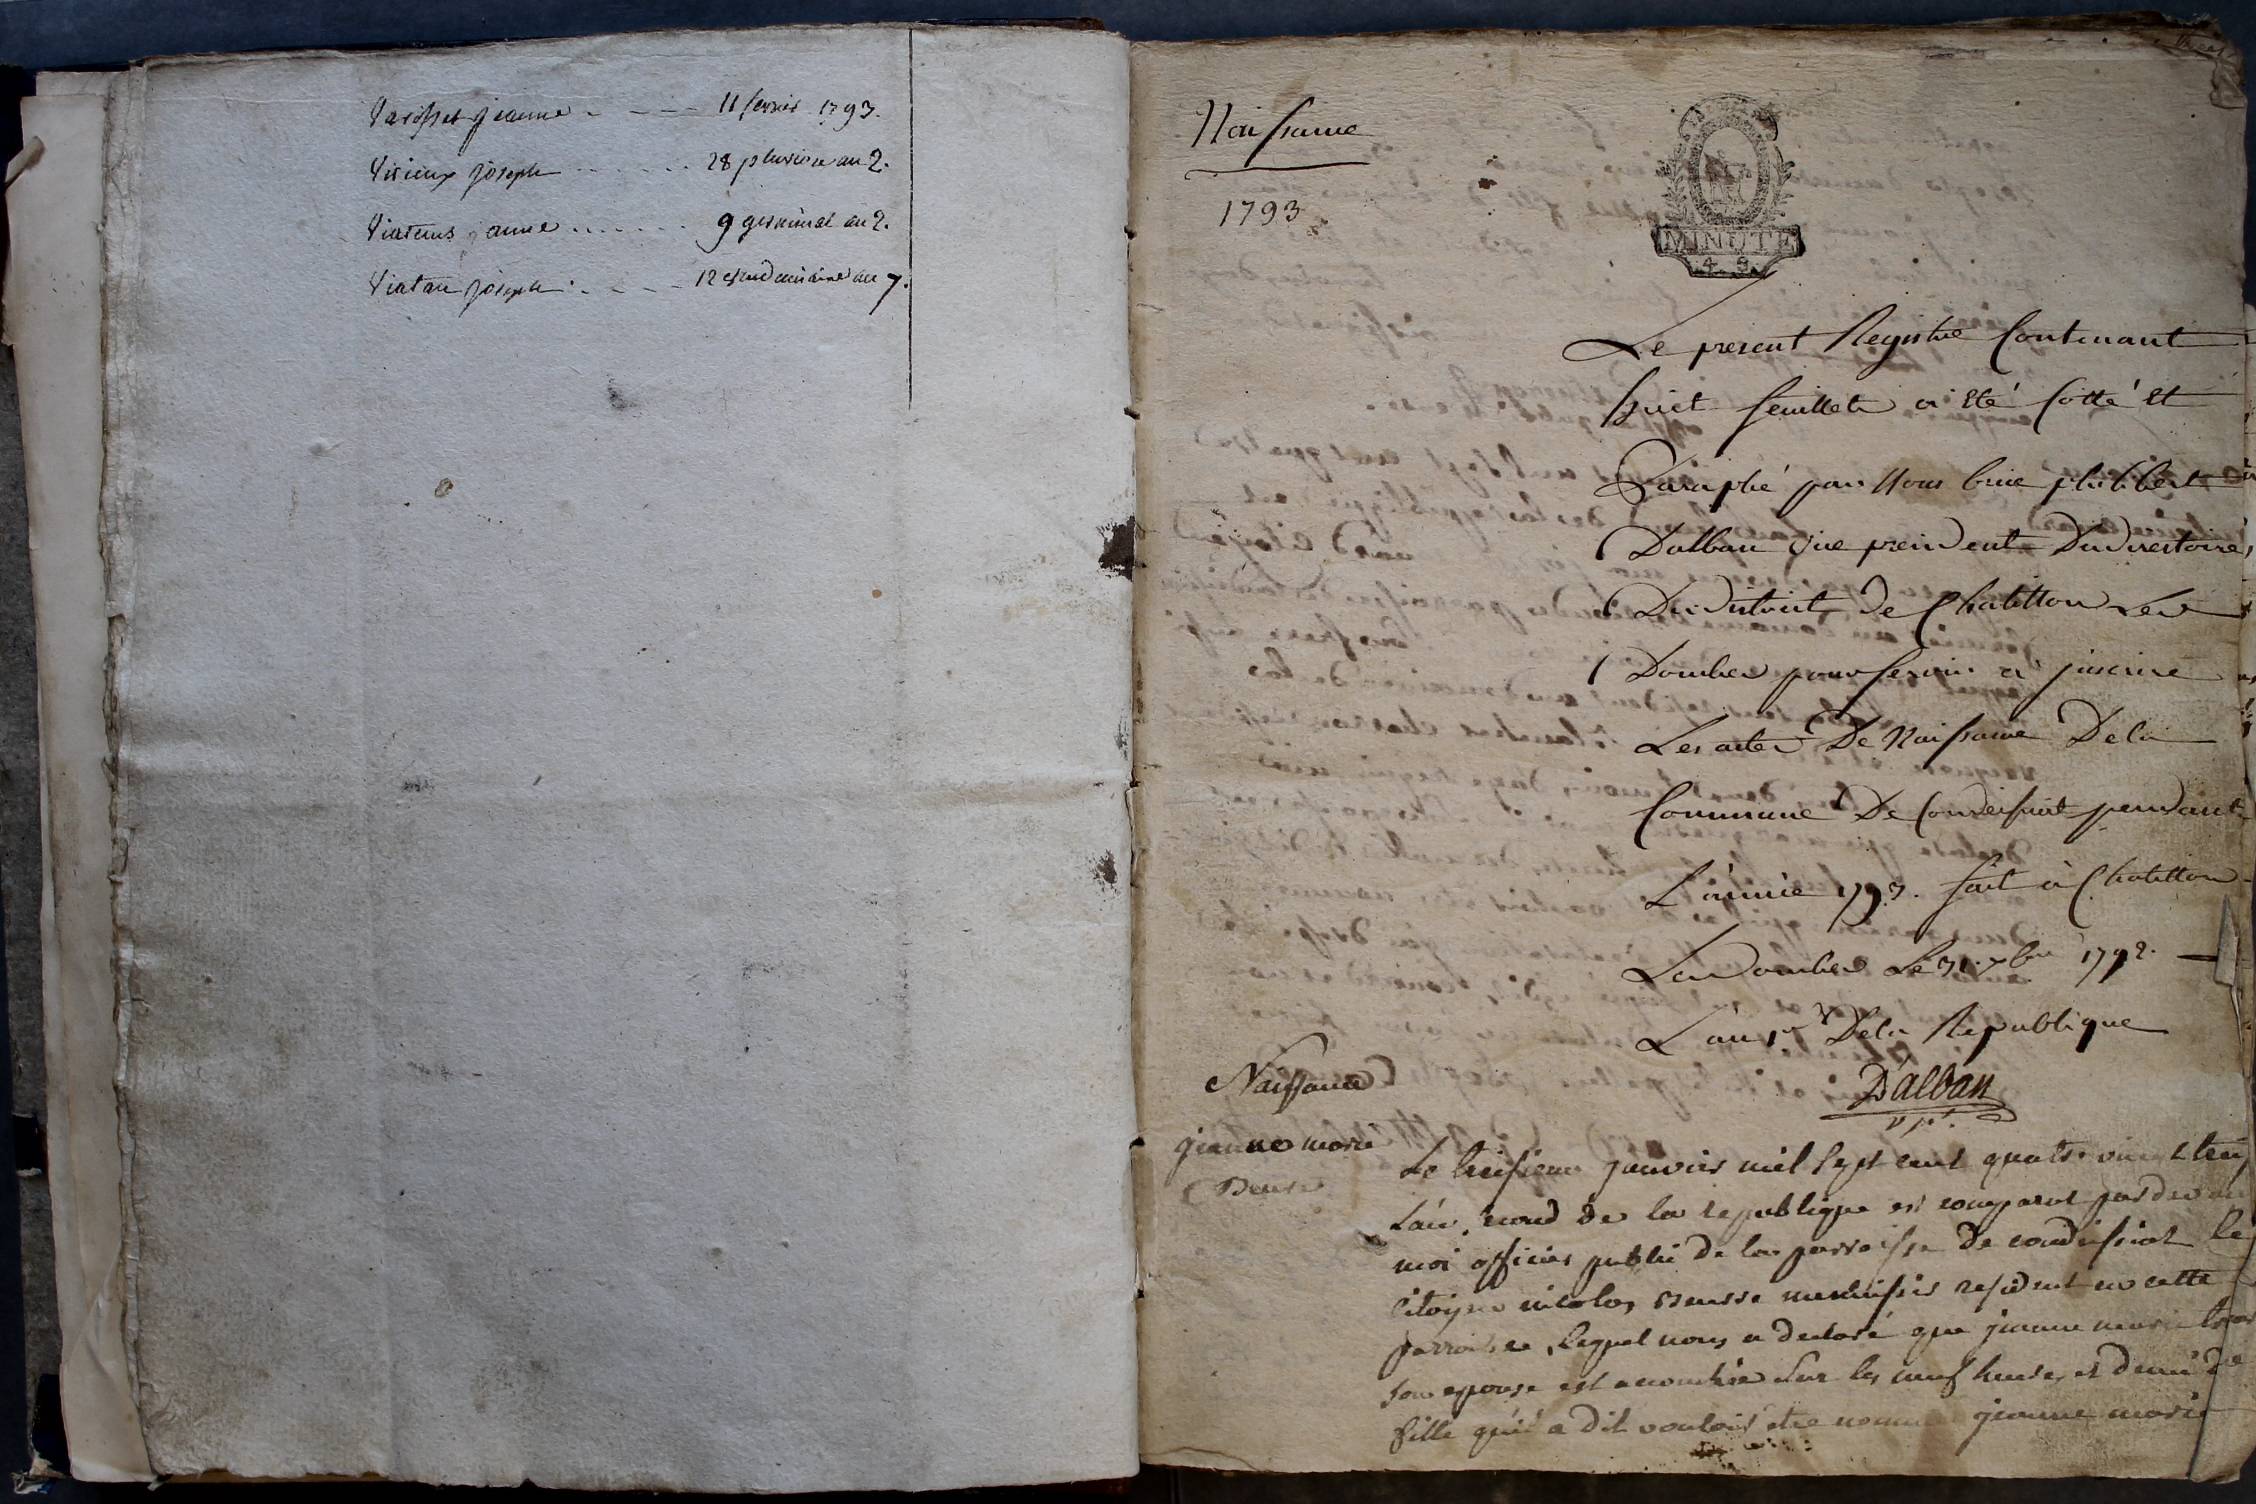 Varisset jeanne - - - 11 fevrier 1793.
Vivieux joseph . . . . . . 28 pluviose an 2.
anne . . . . . . . 9 germinal an 2.
joseph . - - - 12 vendemiaire an 7.
Naissance
1793
MINUTE
4. S.
Le present Registre Contenant
huit feuillets a eté Cotté et
Paraphé par Nous philibert
Dalban vice president Du directoire
Du district de Chatillon Les
Dombes pour servir a inscrire
Les actes De Naissance De la
Commune De Condeissiat pendant
L'année 1793. fait à Chatillon
Les Dombes Le 31. Xbre 1792.
L'an 1er De la Republique
D'alban
v. pt.
Naissance
jeanne marie
Le troisieme janvier mil sept cent quatre vingt
L'an second de la republique est comparut par devant
moi officier public de la parroisse de condeissiat le
Citoyen nicolas menuisier resident en cette
parroisse, lequel nous a declaré que jeanne marie
son epouse est acouchée sur les neuf heures et demi
fille qu'il a dit vouloir etre nommé jeanne marie